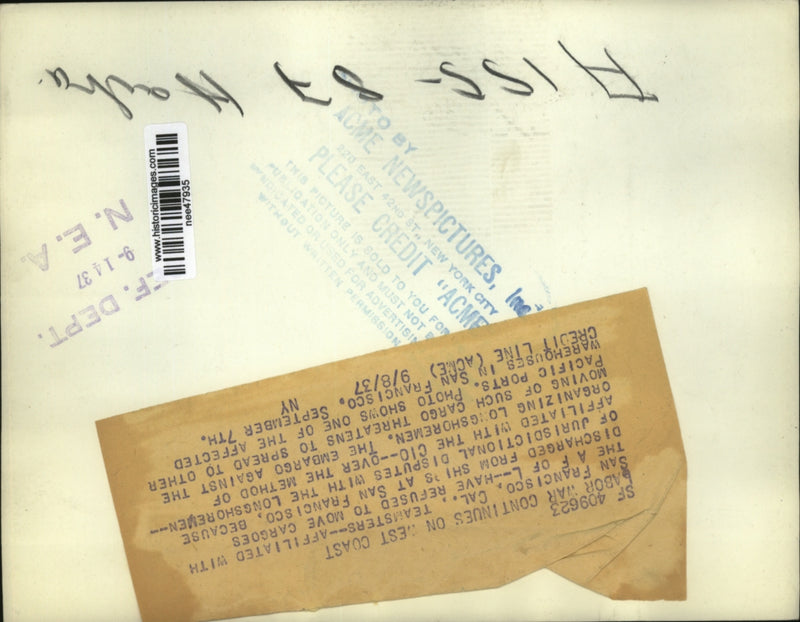 A 155-87 
PHOTO BY
ACME NEWSPICTURES, Inc.
220 EAST 42ND ST., NEW YORK CITY
PLEASE CREDIT "ACME
THIS PICTURE IS SOLD TO YOU FOR
PUBLICATION ONLY AND MUST NOT BE
OR USED FOR ADVERTISING
WITHOUT WRITTEN PERMISSION
www.historicimages.com
nee47935
REF. DEPT.
9-14 37
N. E. A.
SF 409623
LABOR WAR CONTINUES ON WEST COAST
SAN FRANCISCO, CAL.. TEAMSTERS--AFFILIATED WITH
THE A F OF L--HAVE REFUSED TO MOVE CARGOES
DISCHARGED FROM SHIPS AT SAN FRANCISCO, BECAUSE
OF JURISDICTIONAL DISPUTES WITH LONGSHOREMEN--
AFFILIATED WITH THE CIO--OVER THE METHOD OF
ORGANIZING LONGSHOREMEN. THE EMBARGO AGAINST THE
MOVING OF SUCH CARGO THREATENS TO SPREAD TO OTHER
PACIFIC PORTS. PHOTO SHOWS ONE OF THE AFFECTED
WAREHOUSES IN SAN FRANCISCO, SEPTEMBER 7TH.
CREDIT LINE (ACME) 9/8/37 NY